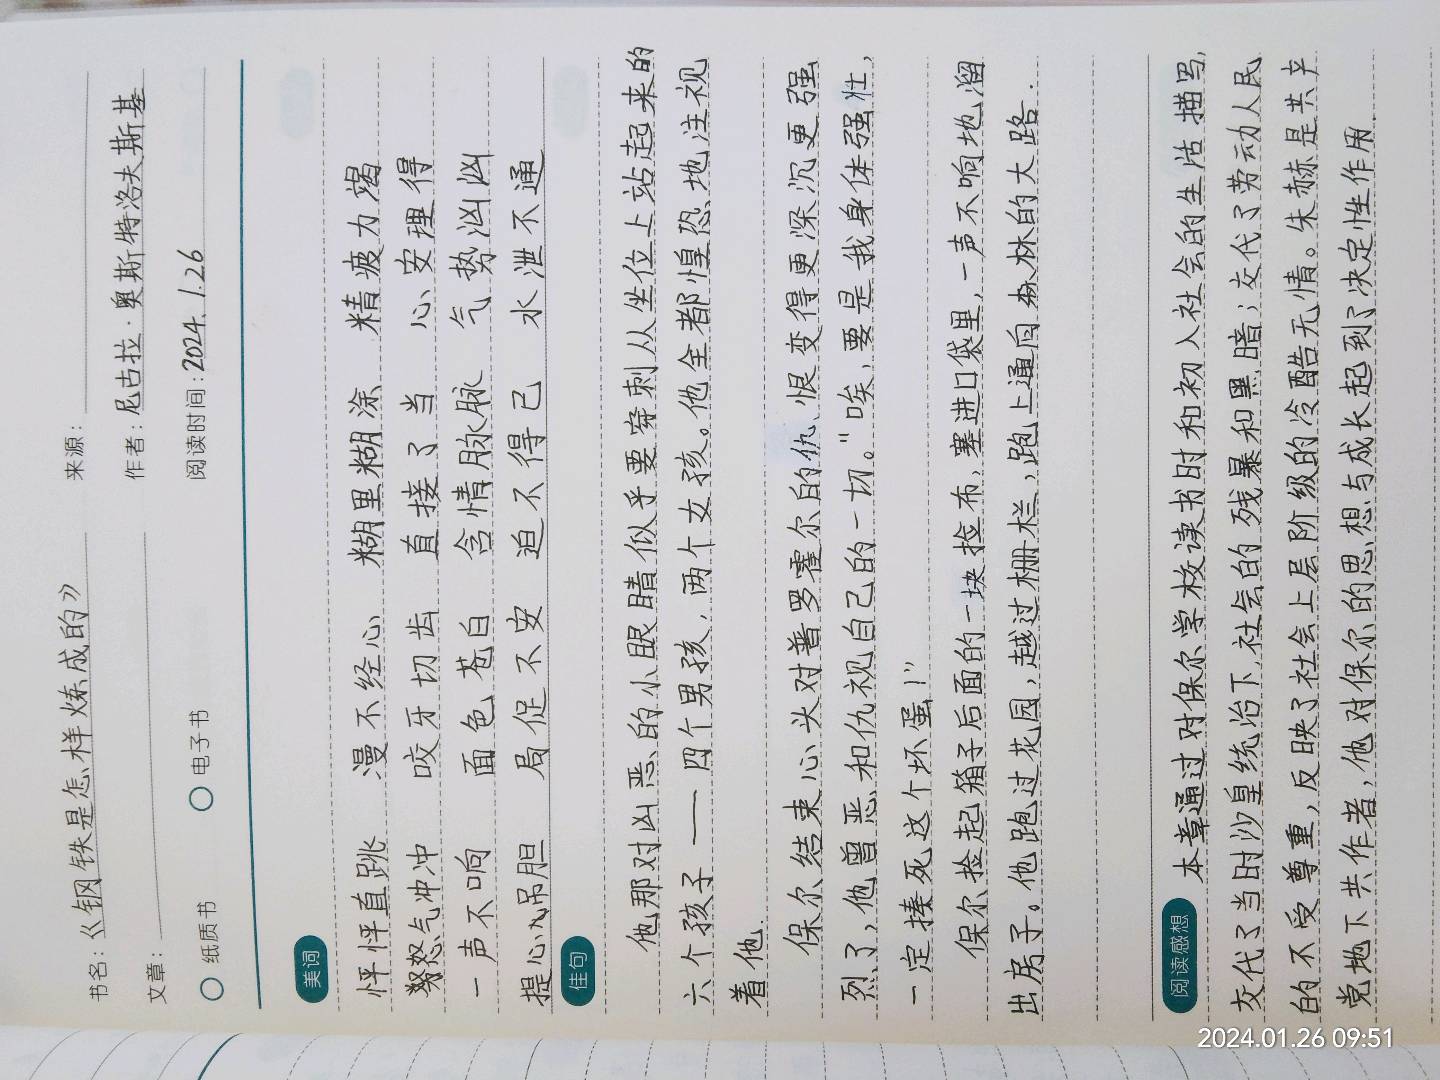 书名：《钢铁是怎样炼成的》
来源：
文章：
作者：尼古拉·奥斯特洛夫斯基
纸质书 电子书
阅读时间：2024.1.26
美词
怦怦直跳 漫不经心 糊里糊涂 精疲力竭
怒气冲冲 咬牙切齿 直接了当 心安理得
一声不响 面色苍白 含情脉脉 气势汹汹
提心吊胆 局促不安 迫不得已 水泄不通
佳句
他那对凶恶的小眼睛似乎要穿刺从坐位上站起来的
六个孩子——四个男孩，两个女孩。他全都惶恐地注视
着他.
保尔结束心头对普罗霍尔的仇、恨变得更深沉更强
烈了，他曾恶和仇视自己的一切。“唉，要是我身体强壮，
一定揍死这个坏蛋！”
保尔捡起箱子后面的一块捡布，塞进口袋里，一声不响地溜
出房子。他跑过花园，越过栅栏，跑上通向森林的大路.
阅读感想
本章通过对保尔学校读书时和初入社会的生活描写，
交代了当时沙皇统治下，社会的残暴和黑暗；交代了劳动人民
的不受尊重，反映了社会上层阶级的冷酷无情。朱赫是共产
党地下共作者，他对保尔的思想与成长起到了决定性作用.
2024.01.26 09:51